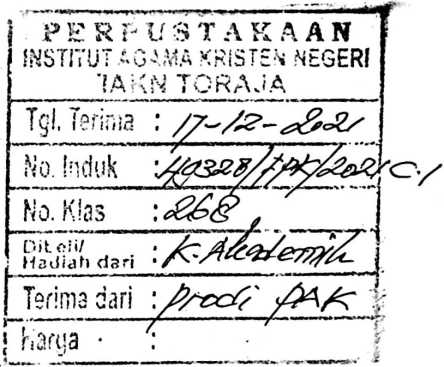 PERPUSTAKAAN
INSTITUT AGAMA KRISTEN NEGERI
IAKN TORAJA
Tgl. Terima : 17-12-2021
No. Induk : 49328/PAK/2021 C.1
No. Klas : 268
Dibeli/
Hadiah dari : K. Akademik
Terima dari : prodi PAK
Harga :